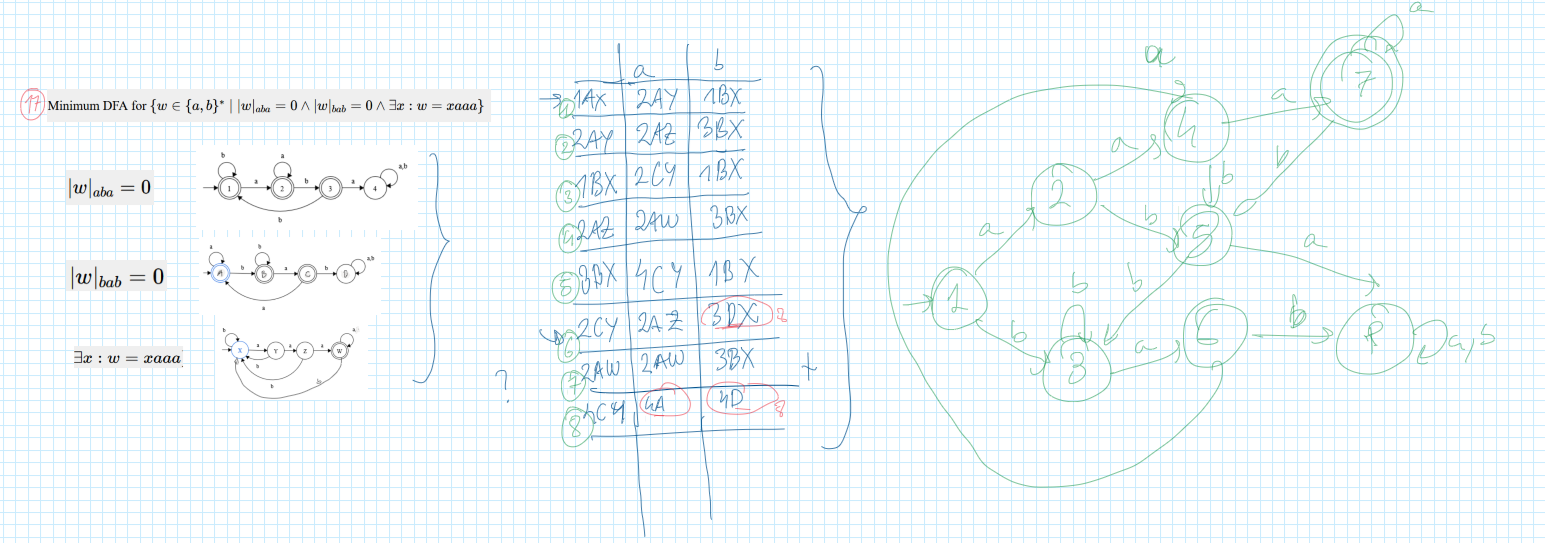 17 Minimum DFA for {w ∈ {a, b}* | |w|aba = 0 ∧ |w|bab = 0 ∧ ∃x : w = xaaa}
|w|aba = 0
b a a,b
1 a 2 b 3 a 4
b
|w|bab = 0
a b a,b
A b B a C b D
a
∃x : w = xaaa.
b a
X a Y a Z a W
b
b
b
?
a b
1 1AX 2AY 1BX
2 2AY 2AZ 3BX
3 1BX 2CY 1BX
4 2AZ 2AW 3BX
5 3BX 4CY 1BX
6 2CY 2AZ 3DX 8
7 2AW 2AW 3BX +
8 4CY 4A 4D 8
a
a
7
4 a
a b
2 b
b 5
a a
1 b b
b 3 a 6 b 8 a,b